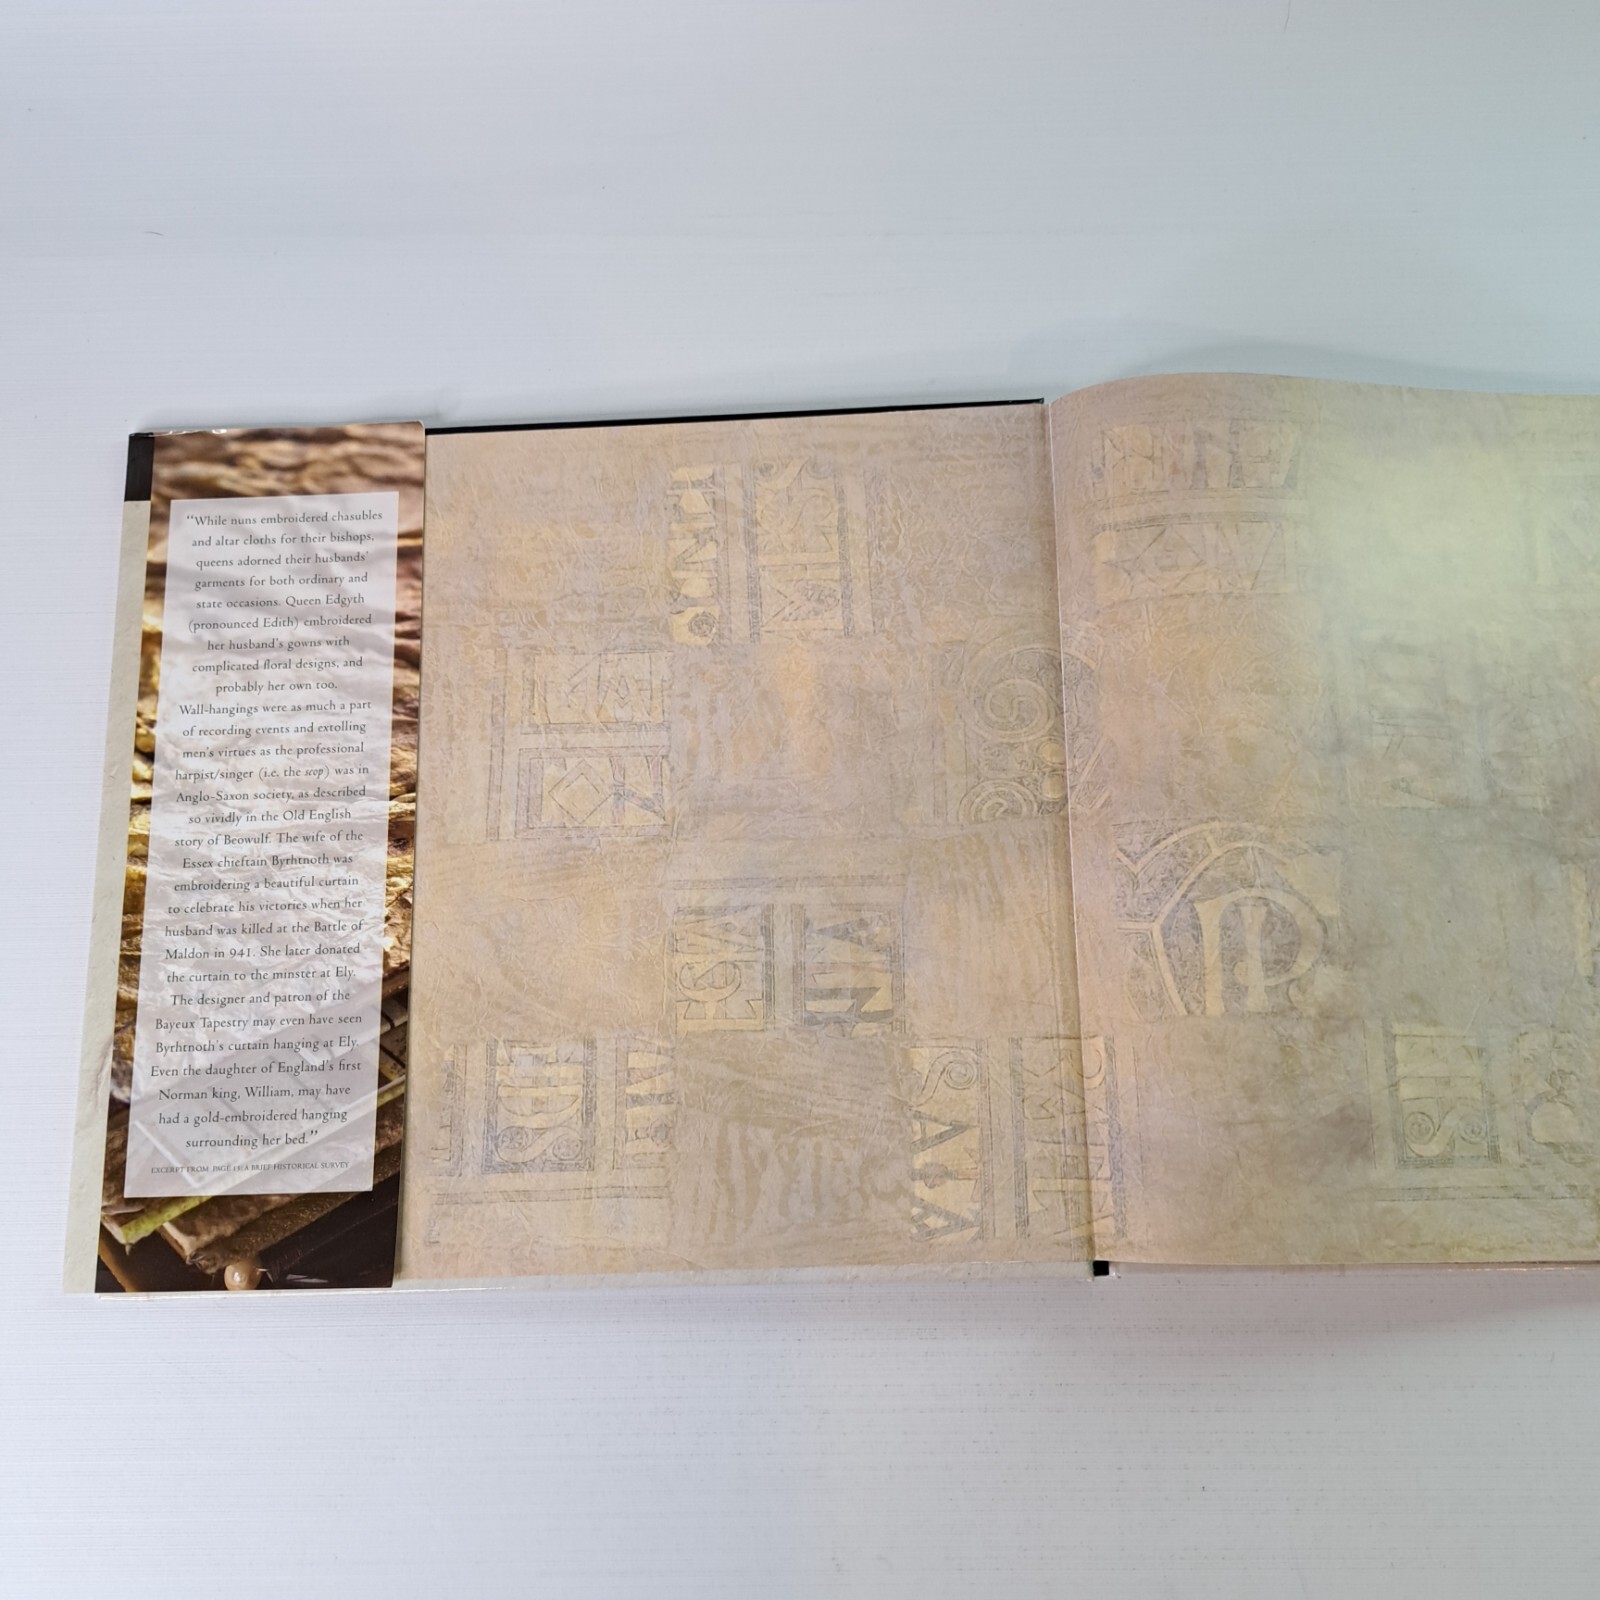 “While nuns embroidered chasubles
and altar cloths for their bishops,
queens adorned their husbands’
garments for both ordinary and
state occasions. Queen Edgyth
(pronounced Edith) embroidered
her husband’s gowns with
complicated floral designs, and
probably her own too.
Wall-hangings were as much a part
of recording events and extolling
men’s virtues as the professional
harpist/singer (i.e. the scop) was in
Anglo-Saxon society, as described
so vividly in the Old English
story of Beowulf. The wife of the
Essex chieftain Byrhtnoth was
embroidering a beautiful curtain
to celebrate his victories when her
husband was killed at the Battle of
Maldon in 941. She later donated
the curtain to the minster at Ely.
The designer and patron of the
Bayeux Tapestry may even have seen
Byrhtnoth’s curtain hanging at Ely.
Even the daughter of England’s first
Norman king, William, may have
had a gold-embroidered hanging
surrounding her bed.”
EXCERPT FROM PAGE A BRIEF HISTORICAL SURVEY